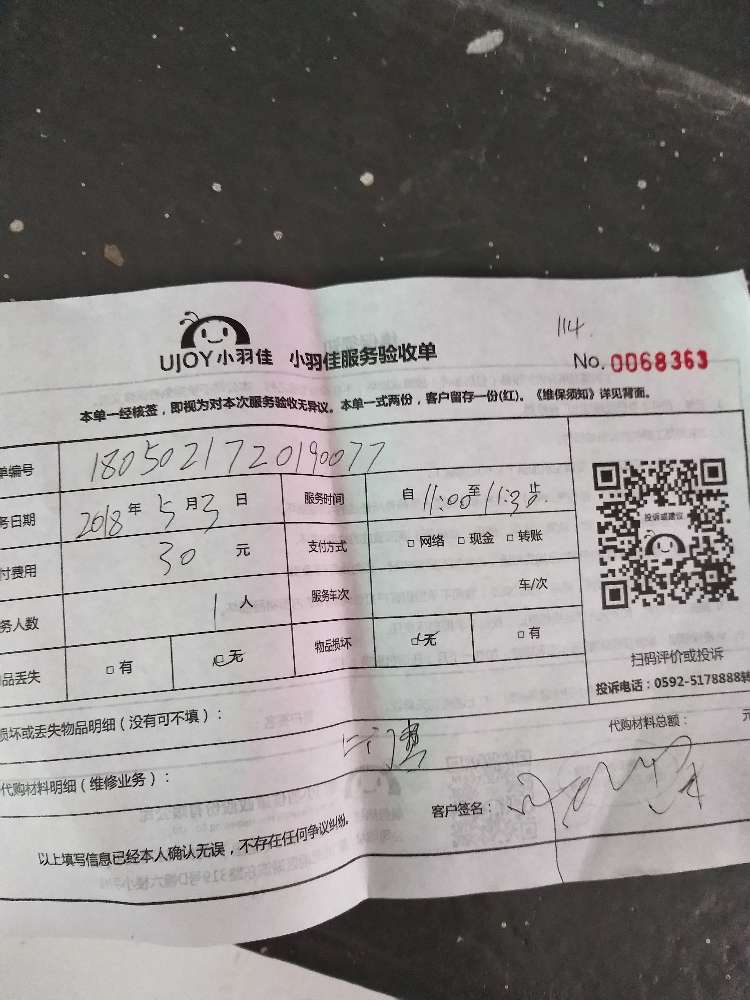 114.
UJOY小羽佳 小羽佳服务验收单 No. 0068363
本单一经核签，即视为对本次服务验收无异议。本单一式两份，客户留存一份(红)。《维保须知》详见背面。
单编号 1805021720190077
务日期 2018年5月3日 服务时间 自11:00至11:30止
付费用 30元 支付方式 □ 网络 □ 现金 □ 转账
务人数 1人 服务车次 车/次
品丢失 □ 有 无 物品损坏 无 □ 有
投诉或建议
扫码评价或投诉
投诉电话：0592-5178888转
损坏或丢失物品明细（没有可不填）：
代购材料总额： 元
代购材料明细（维修业务）：
客户签名：
以上填写信息已经本人确认无误，不存在任何争议纠纷。